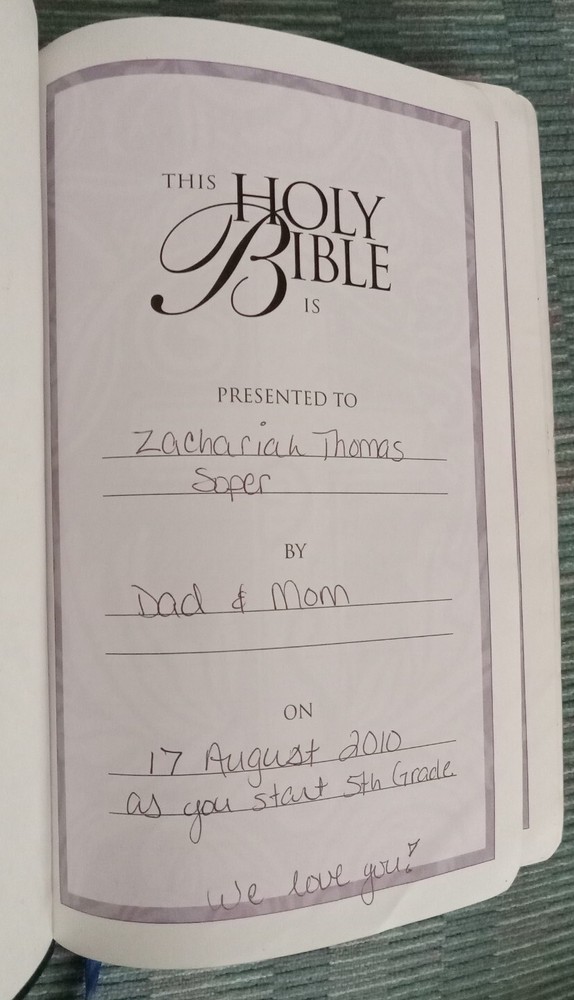 THIS HOLY
BIBLE
IS
PRESENTED TO
Zachariah Thomas
Soper
BY
Dad & Mom
ON
17 August 2010
as you start 5th Grade
We love you!